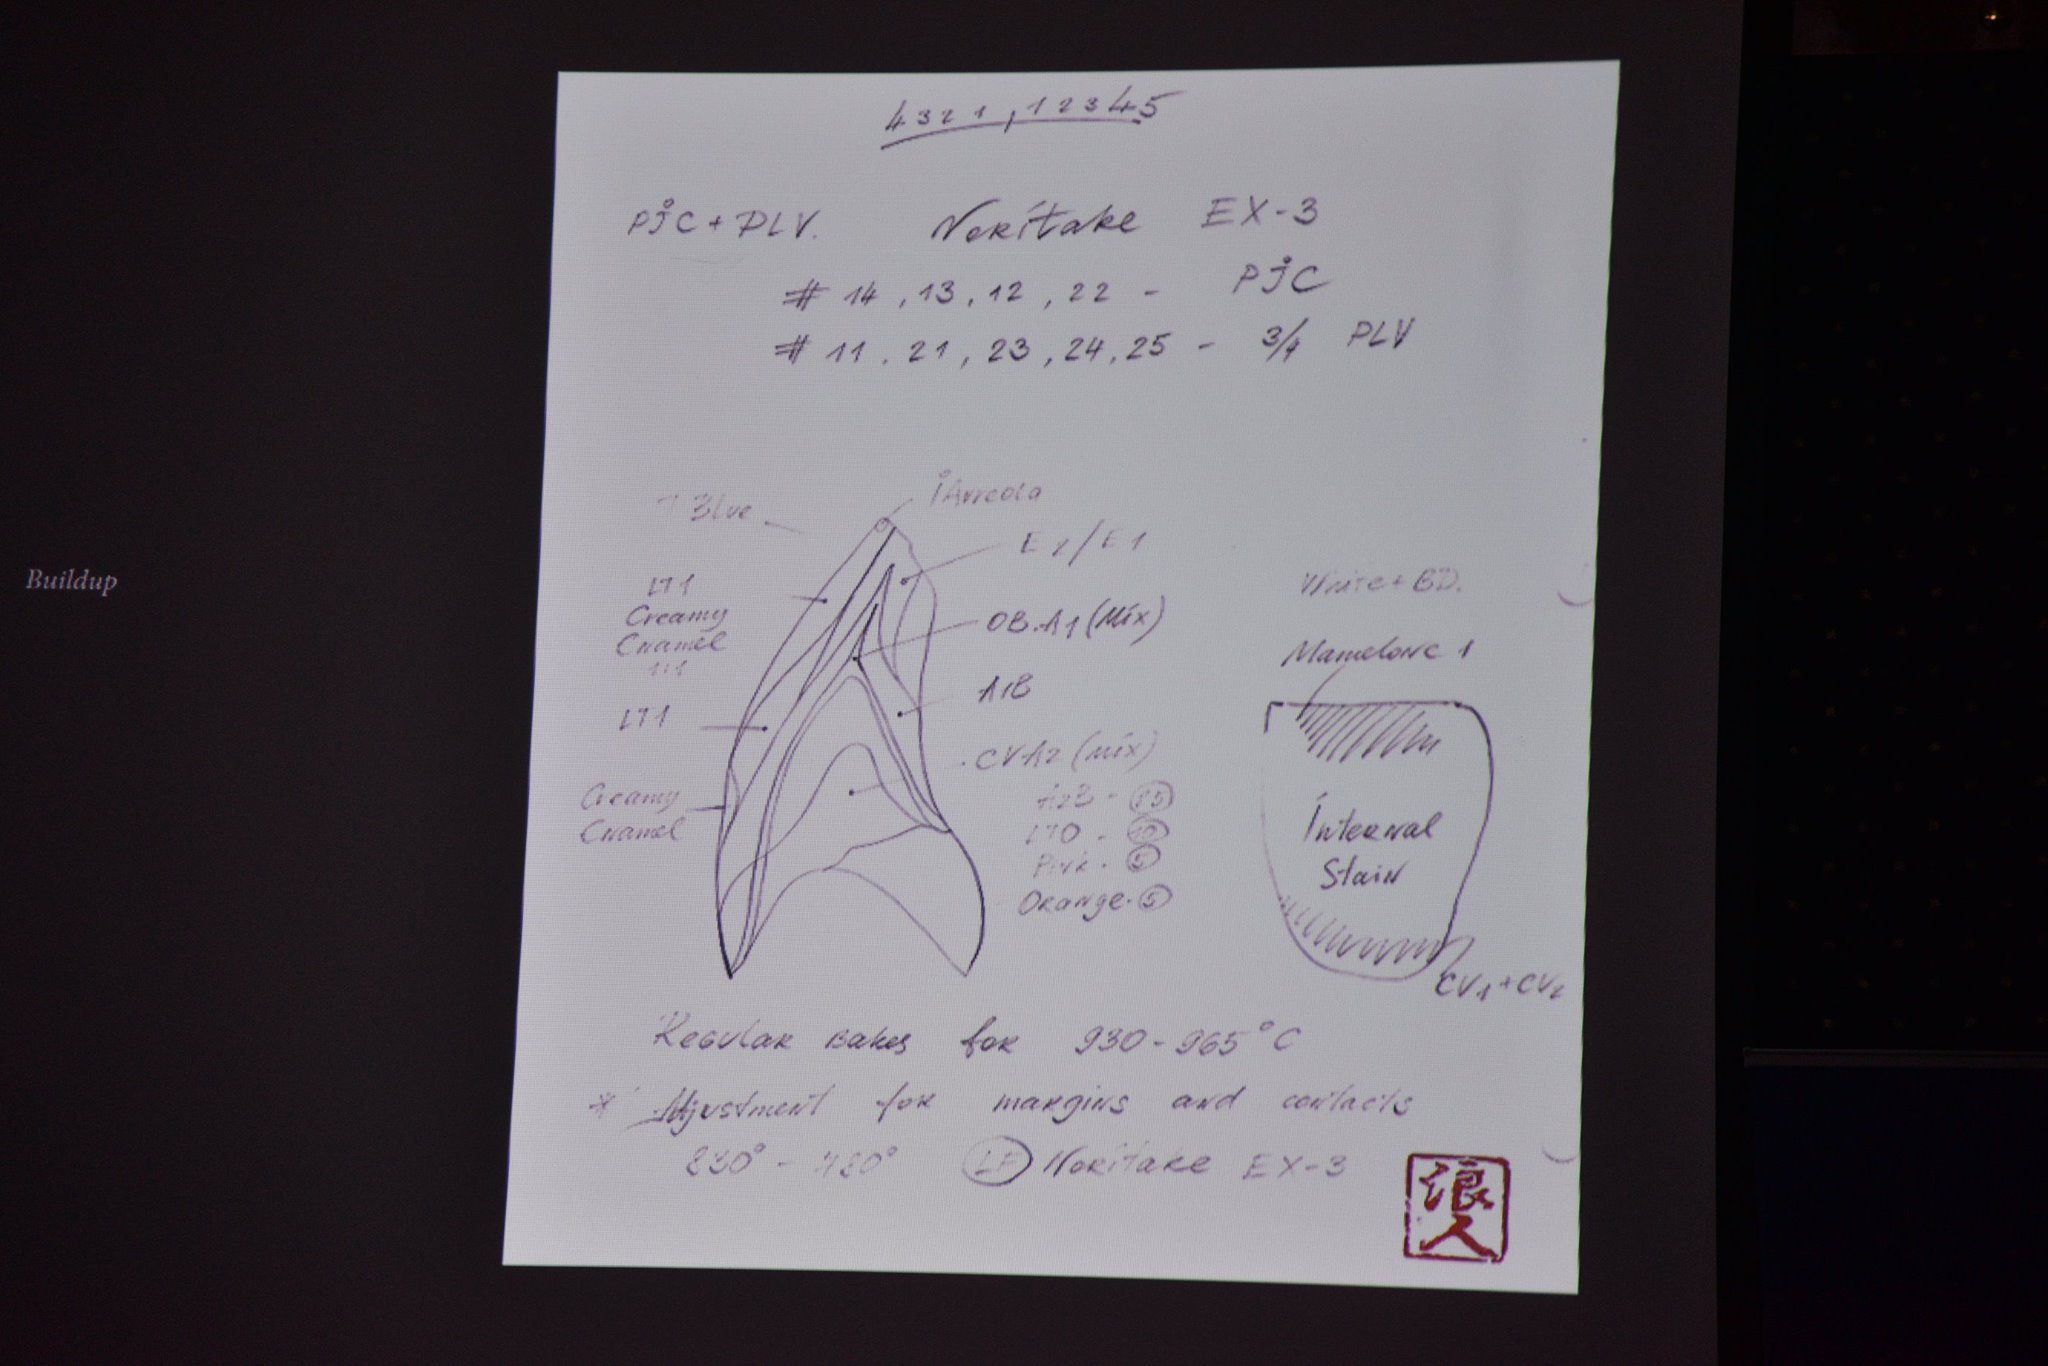 4321,12345
PJC + PLV. Noritake EX-3
# 14, 13, 12, 22 - PJC
# 11, 21, 23, 24, 25 - 3/4 PLV
T Blue
E2/E1
LT1
Creamy
Enamel
OB.A1 (Mix)
LT1
A1B
Creamy
Enamel
CVA2 (Mix)
A2B -
LTO -
Pink -
Orange - 5
White + BD.
Mamelone 1
Internal
Stain
CV1 + CV2
Buildup
Regular Bakes for 930 - 965°C
* Adjustment for margins and contacts
LF Noritake EX-3
浪
人